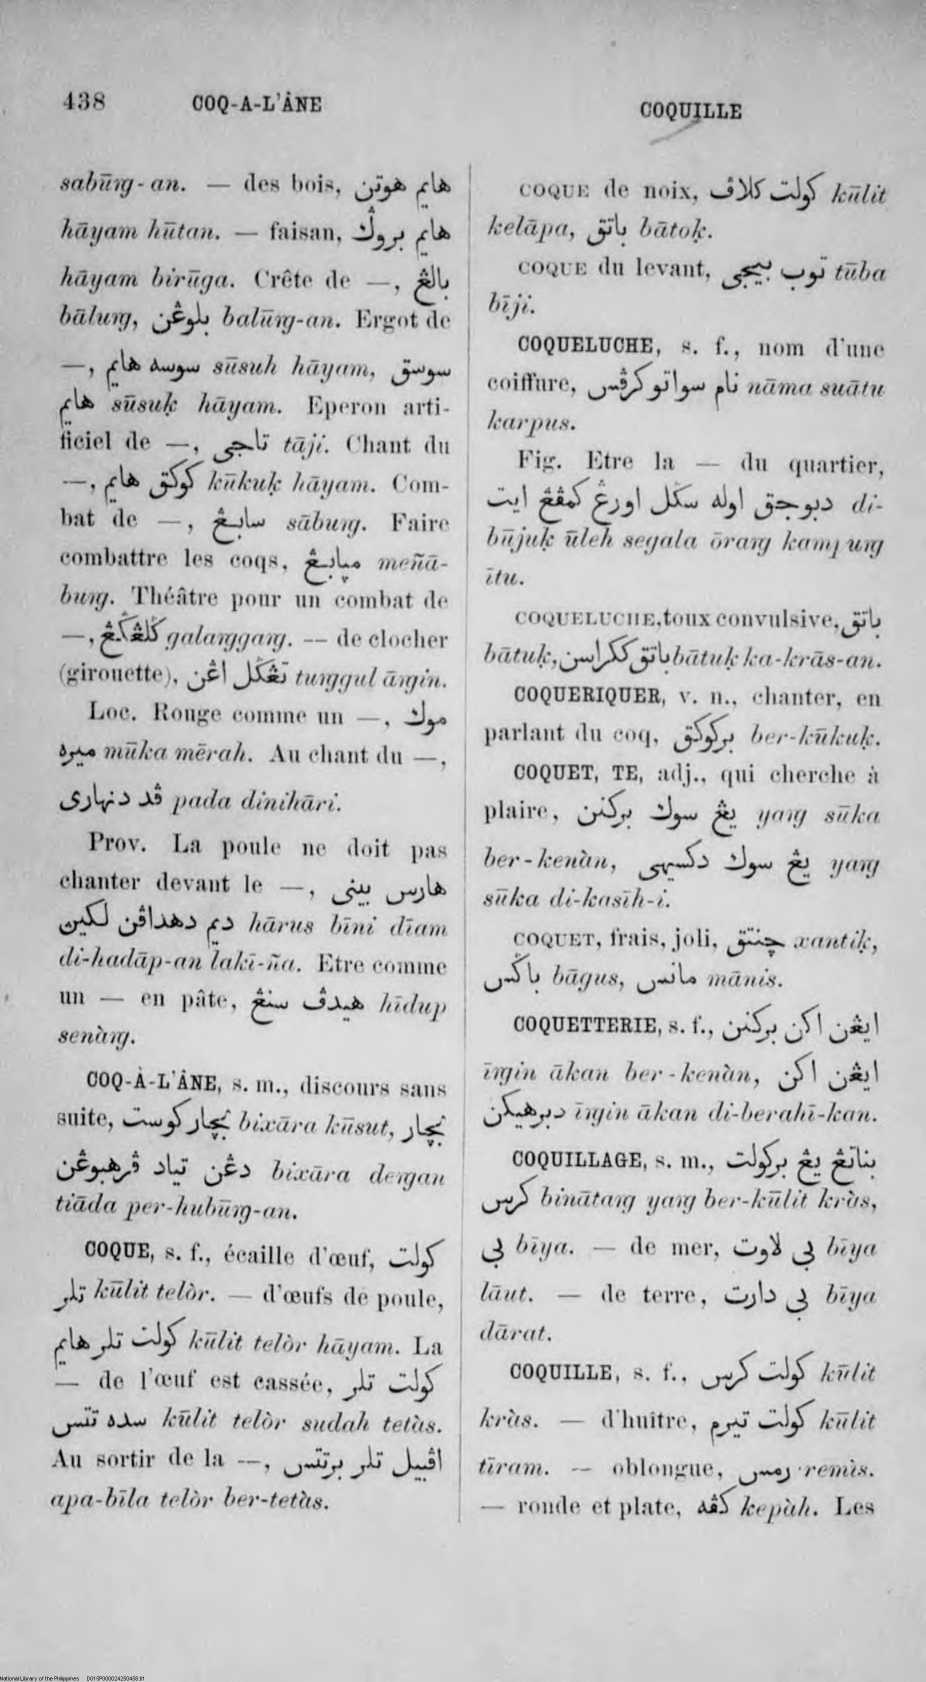 438 COQ-A-L'ÂNE
COQUILLE
sabūrg-an. — des bois, هايم هوتن
hāyam hūtan. — faisan, هايم بروݢ
hāyam birūga. Crête de —, بالڠ
bālurg, بلوڠن balūrg-an. Ergot de
—, سوسه هايم sūsuh hāyam, سوسق
هايم sūsuḳ hāyam. Eperon arti-
ficiel de —, تاجى tāji. Chant du
—, كوكق هايم kūkuḳ hāyam. Com-
bat de —, سابڠ sāburg. Faire
combattre les coqs, مپابڠ meñā-
burg. Théâtre pour un combat de
—, ݢلڠݢڠ galarggarg. — de clocher
(girouette), تڠݢل اڠن turggul ārgin.
Loc. Rouge comme un —, موك
ميره mūka mērah. Au chant du —,
ڤد دنهارى pada dinihāri.
Prov. La poule ne doit pas
chanter devant le —, هارس بينى
ديم دهداڤن لكين hārus bīni dīam
di-hadāp-an lakī-ña. Etre comme
un — en pâte, هيدڤ سنڠ hīdup
senàrg.
COQ-À-L'ÂNE, s. m., discours sans
suite, بچار كوست bixāra kūsut, بچار
دڠن تياد ڤرهبوڠن bixāra dergan
tiāda per-hubūrg-an.
COQUE, s. f., écaille d'œuf, كولت
تلر kūlit telòr. — d'œufs de poule,
كولت تلر هايم kūlit telòr hāyam. La
— de l'œuf est cassée, كولت تلر
سده تتس kūlit telòr sudah tetàs.
Au sortir de la —, اڤبيل تلر برتتس
apa-bīla telòr ber-tetàs.
COQUE de noix, كولت كلاڤ kūlit
kelāpa, باتق bātoḳ.
COQUE du levant, توب بيجى tūba
bīji.
COQUELUCHE, s. f., nom d'une
coiffure, نام سواتو كرڤس nāma suātu
karpus.
Fig. Etre la — du quartier,
دبوجق اوله سݢل اورڠ كمڤڠ ايت di-
būjuḳ ūleh segala ōrarg kampurg
ītu.
COQUELUCHE, toux convulsive, باتق
bātuḳ, باتق ككراسن bātuḳ ka-krās-an.
COQUERIQUER, v. n., chanter, en
parlant du coq, بركوكق ber-kūkuḳ.
COQUET, TE, adj., qui cherche à
plaire, يڠ سوك بركنن yarg sūka
ber-kenàn, يڠ سوك دكسيهى yarg
sūka di-kasīh-i.
COQUET, frais, joli, چنتق xantiḳ,
باݢس bāgus, مانس mānis.
COQUETTERIE, s. f., ايڠن اكن بركنن
īrgin ākan ber-kenàn, ايڠن اكن
دبرهيكن īrgin ākan di-berahī-kan.
COQUILLAGE, s. m., بناتڠ يڠ بركولت
كرس binātarg yarg ber-kūlit kràs,
بي bīya. — de mer, بي لاوت bīya
lāut. — de terre, بي دارت bīya
dārat.
COQUILLE, s. f., كولت كرس kūlit
kràs. — d'huître, كولت تيرم kūlit
tīram. — oblongue, رمس remìs.
— ronde et plate, كڤه kepàh. Les
National Library of the Philippines